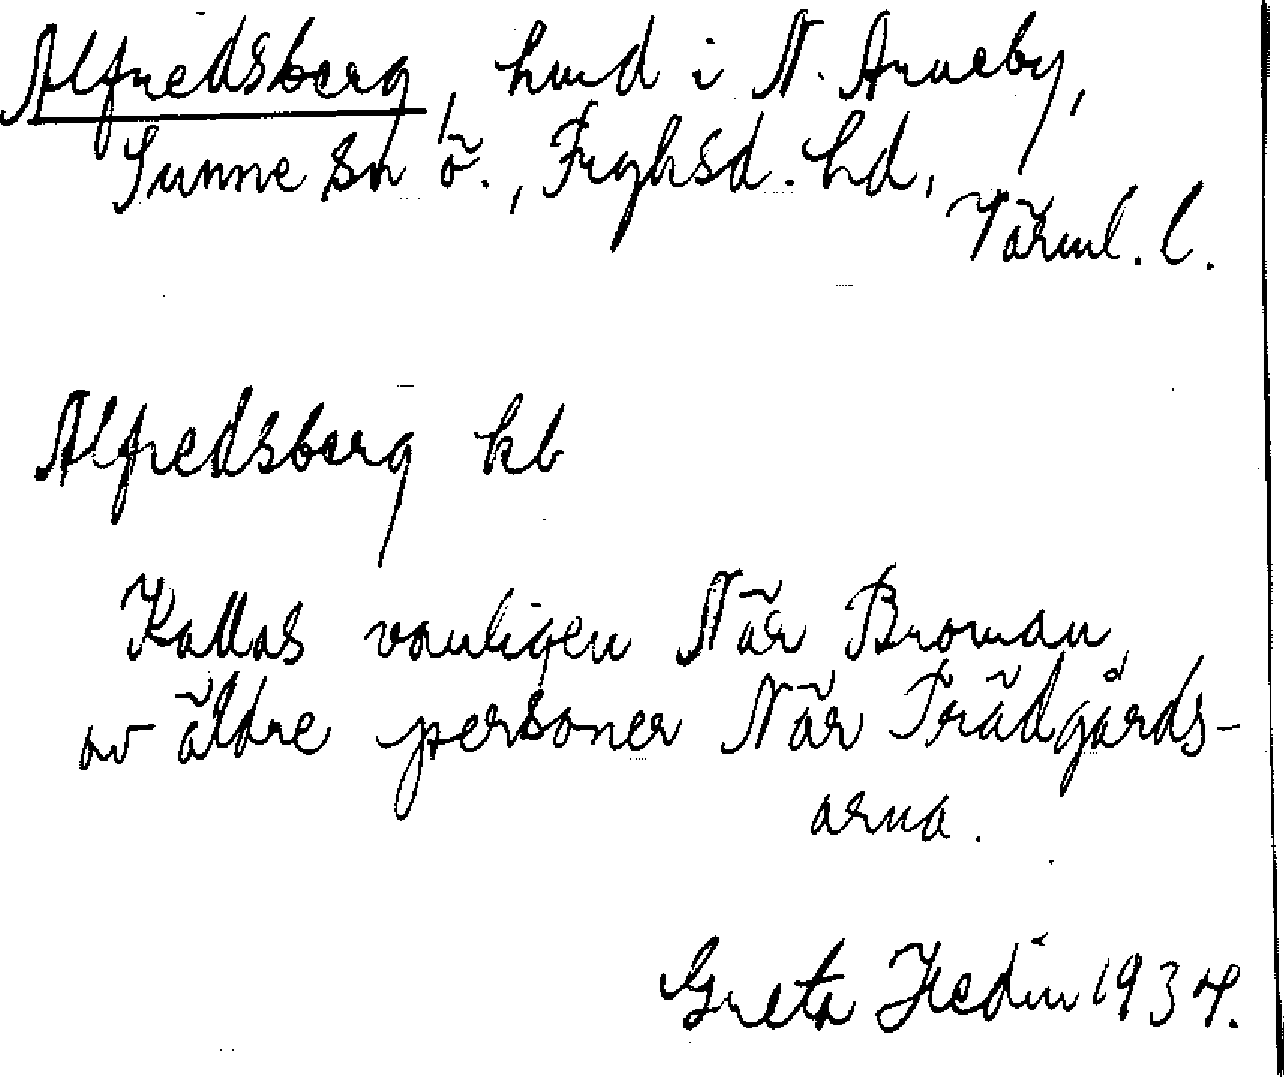 Alfredsberg, hmd i N. Arneby,
Sunne sn ö., Fryksd. hd,
Värml. l.
Alfredsberg kb
Kallas vanligen När Broman
av äldre personer När Trädgårds-
arna.
Greta Hedin 1934.